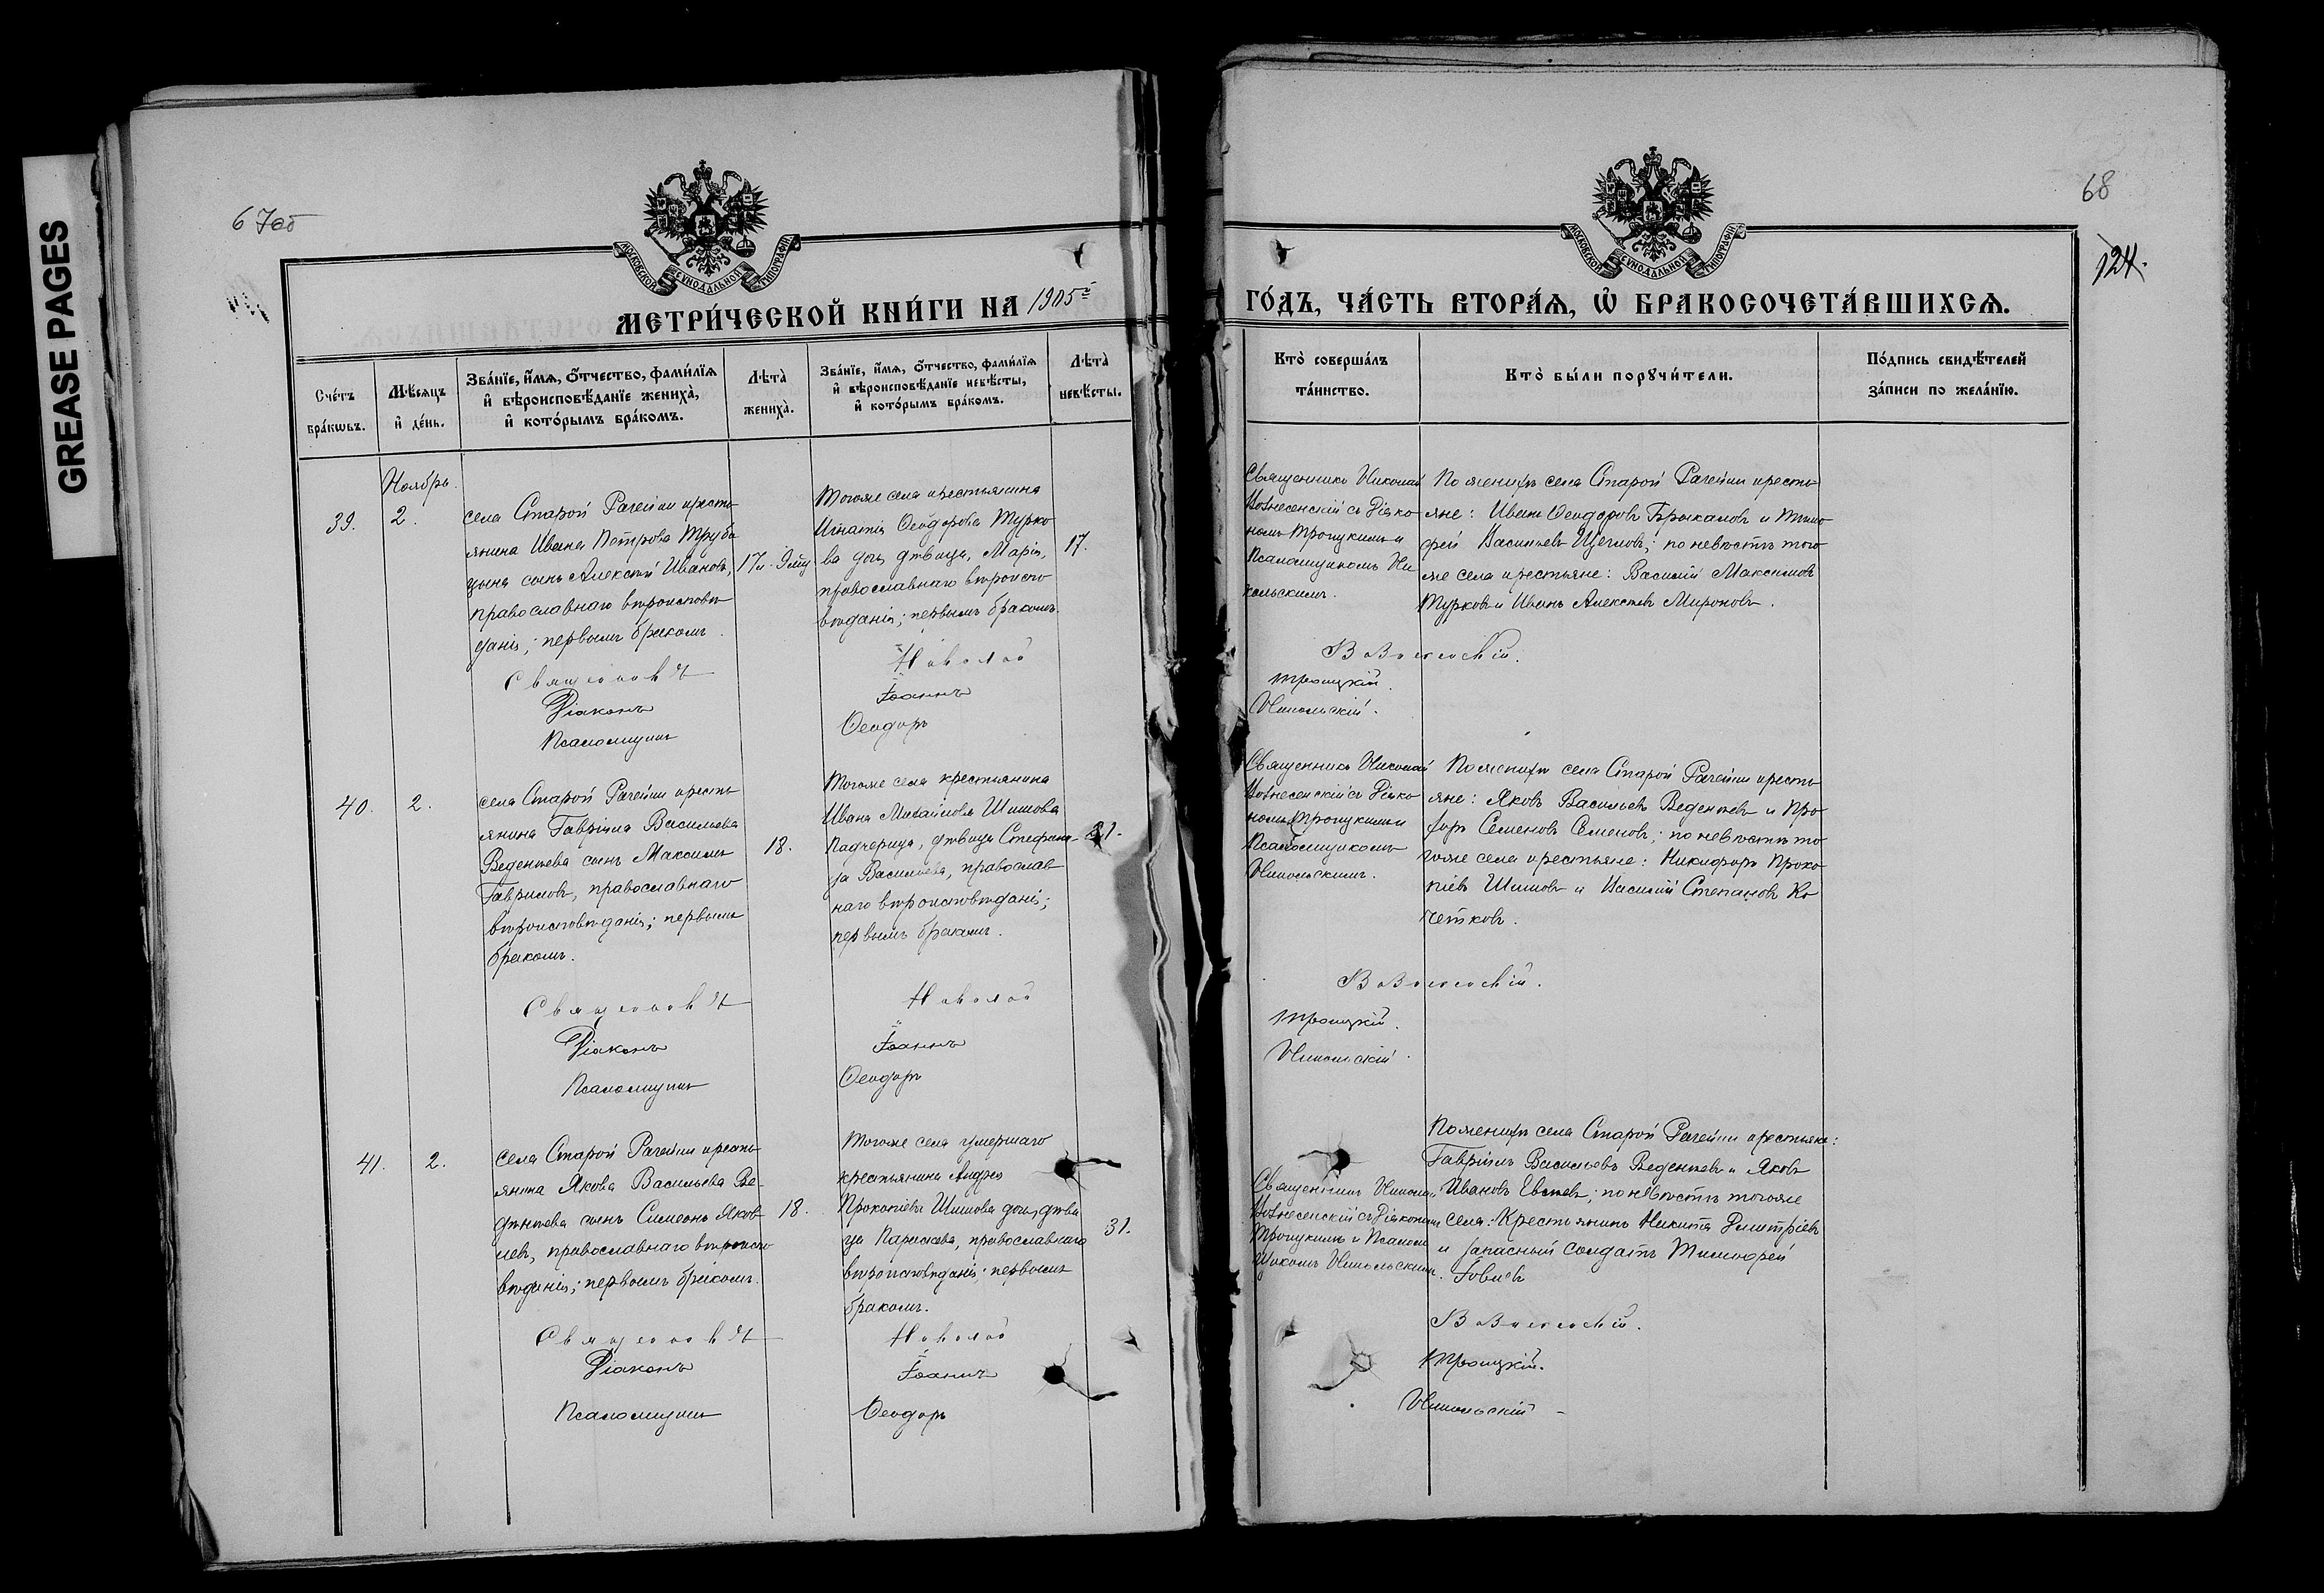 GREASE PAGES
67об
68
124.
МОСКОВСКОЙ СѴНОДАЛЬНОЙ ТИПОГРАФІИ
МОСКОВСКОЙ СѴНОДАЛЬНОЙ ТИПОГРАФІИ
МЕТРИ́ЧЕСКОЙ КНИ́ГИ НА 1905й
ГО́ДЪ, ЧА́СТЬ ВТОРА́Ѧ, Ѽ БРАКОСОЧЕТА́ВШИХСѦ.
Сче́тъ
бра́кѡвъ.
Мѣ́сяцъ
и҆ де́нь.
Зва́нїе, и҆́мѧ, ѻ҆́тчество, фами́лїѧ
и҆ вѣроисповѣ́данїе жениха̀,
и҆ кото́рымъ бра́комъ.
Лѣта̀
жениха̀.
Зва́нїе, и҆́мѧ, ѻ҆́тчество, фами́лїѧ
и҆ вѣроисповѣ́данїе невѣ́сты,
и҆ кото́рымъ бра́комъ.
Лѣта̀
невѣ́сты.
Кто̀ соверша́лъ
та́инство.
Кто̀ бы́ли порꙋчи́тели.
По́дпись свидѣ́телей
за́писи по жела́нїю.
Ноябрь.
39.
2.
села Старой Рачейки кресть
янина Ивана Петрова Труба
цына сынъ Алексѣй Ивановъ,
православнаго вѣроисповѣ
данія; первымъ бракомъ.
17
Тогоже села крестьянина
Игнатія Ѳеодорова Турко
ва дочь дѣвица, Марія,
православнаго вѣроиспо
вѣданія; первымъ бракомъ.
17.
Священникъ Николай
Вознесенскій съ Діако
номъ Троицкимъ и
Псаломщикомъ Ни
кольскимъ.
По женихѣ села Старой Рачейки кресть
яне: Иванъ Ѳеодоровъ Брыкаловъ и Тимо
фей Васильевъ Щегловъ; по невѣстѣ того
же села крестьяне: Василій Максимовъ
Турковъ и Иванъ Алексѣевъ Мироновъ.
Священникъ
Николай
Вознесенскій.
Діаконъ
Іоаннъ
Троицкій.
Псаломщикъ
Ѳеодоръ
Никольскій.
40.
2.
села Старой Рачейки кресть
янина Гавріила Васильева
Веденѣева сынъ Максимъ
Гавриловъ, православнаго
вѣроисповѣданія; первымъ
бракомъ.
18.
Тогоже села крестьянина
Ивана Михайлова Шишова
падчерица, дѣвица Стефани-
да Васильева, православ
наго вѣроисповѣданія;
первымъ бракомъ.
21.
Священникъ Николай
Вознесенскій съ Діако
номъ Троицкимъ и
Псаломщикомъ
Никольскимъ.
По женихѣ села Старой Рачейки кресть
яне: Яковъ Васильевъ Веденѣевъ и Про
хоръ Семеновъ Семеновъ; по невѣстѣ то
гоже села крестьяне: Никифоръ Проко
піевъ Шишовъ и Василій Степановъ Ко
четковъ.
Священникъ
Николай
Вознесенскій.
Діаконъ
Іоаннъ
Троицкій.
Псаломщикъ
Ѳеодоръ
Никольскій.
41.
2.
села Старой Рачейки кресть
янина Якова Васильева Ве-
денѣева сынъ Симеонъ Яков
левъ, православнаго вѣроиспо
вѣданія; первымъ бракомъ.
18.
Тогоже села умершаго
крестьянина Андрея
Прокопіева Шишова дочь, дѣви
ца Параскева, православнаго
вѣроисповѣданія; первымъ
бракомъ.
31.
Священникъ Николай
Вознесенскій съ Діакономъ
Троицкимъ и Псалом
щикомъ Никольскимъ.
По женихѣ села Старой Рачейки крестьяне:
Гавріилъ Васильевъ Веденѣевъ и Яковъ
Ивановъ Евсѣевъ; по невѣстѣ тогоже
села: Крестьянинъ Никита Димитріевъ
и запасный солдатъ Тимофей
Священникъ
Николай
Вознесенскій.
Діаконъ
Іоаннъ
Троицкій.
Псаломщикъ
Ѳеодоръ
Никольскій